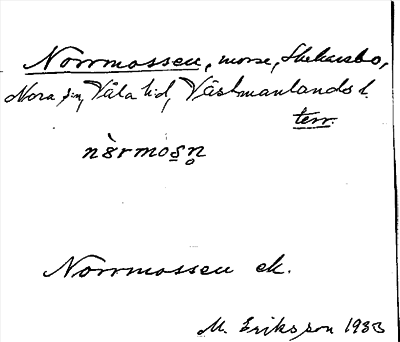 Norrmossen, mosse, Skekarsbo,
Nora sn, Våla hd, Västmanlands l.
terr.
nòrmosn̥
Norrmossen ek.
M. Eriksson 1933